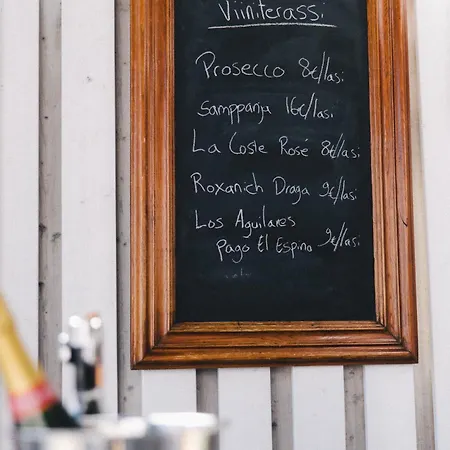 Viiniterassi
Prosecco 8€/lasi
Samppanja 16€/lasi
La Coste Rosé 8€/lasi
Roxanich Draga 9€/lasi
Los Aguilares
Pago El Espino 9€/lasi